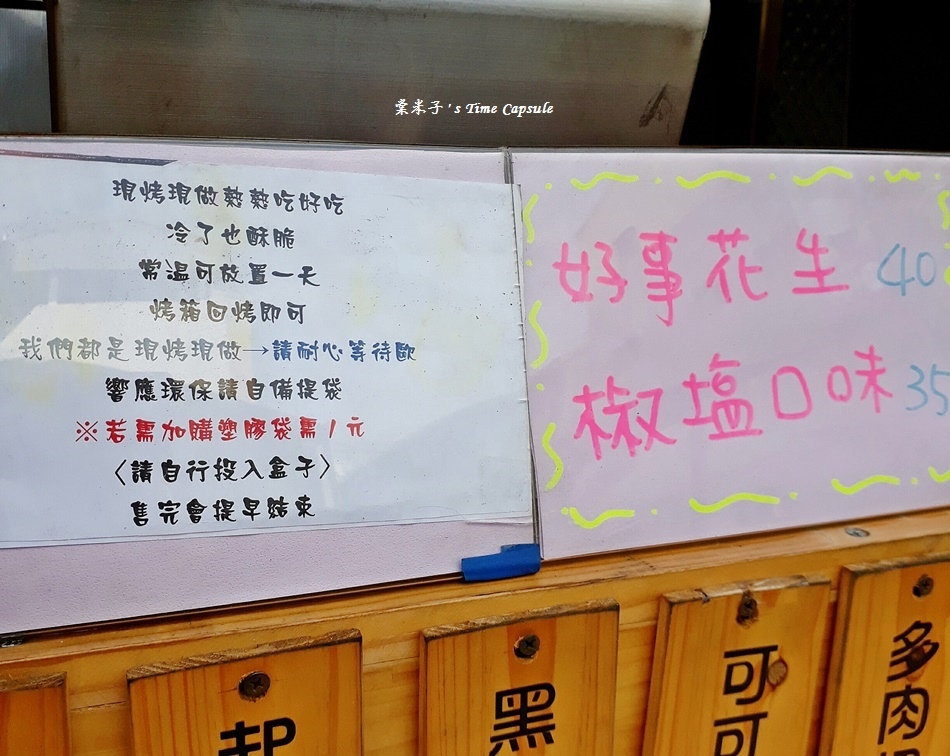 棠米子's Time Capsule
現烤現做熱熱吃好吃
冷了也酥脆
常溫可放置一天
烤箱回烤即可
我們都是現烤現做→請耐心等待歐
響應環保請自備提袋
※若需加購塑膠袋需1元
〈請自行投入盒子〉
售完會提早結束
好事花生 40
椒塩口味 35
起
黑
可可
多肉